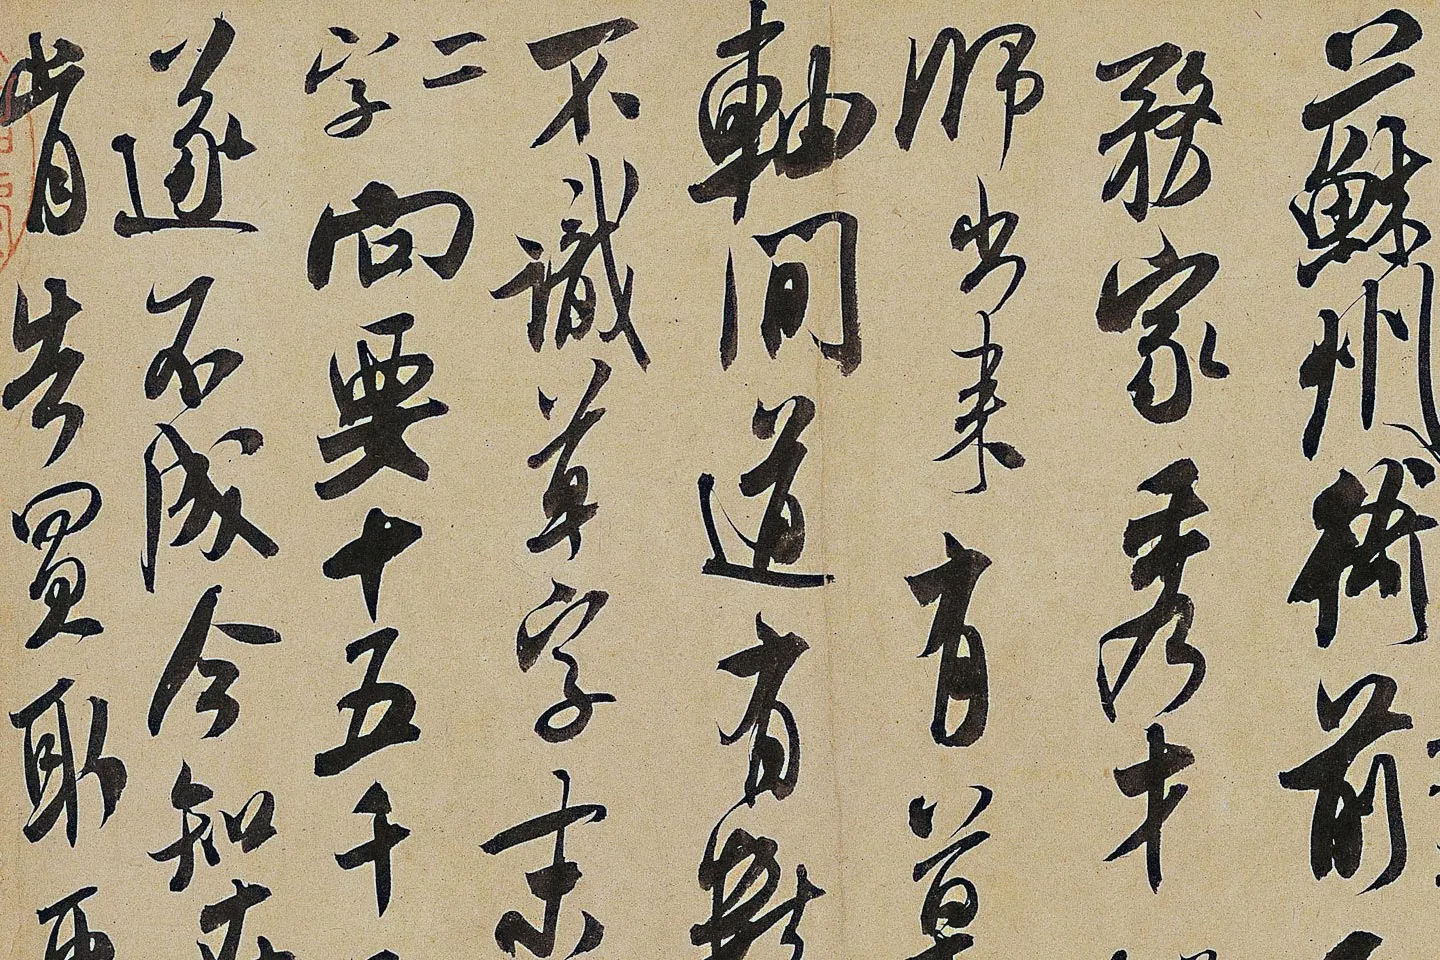 蘇州衙前
務家秀才
師出来有草
軸間道有數
不識草字末
二字向要十五千
遂不成今知在
肯告買取